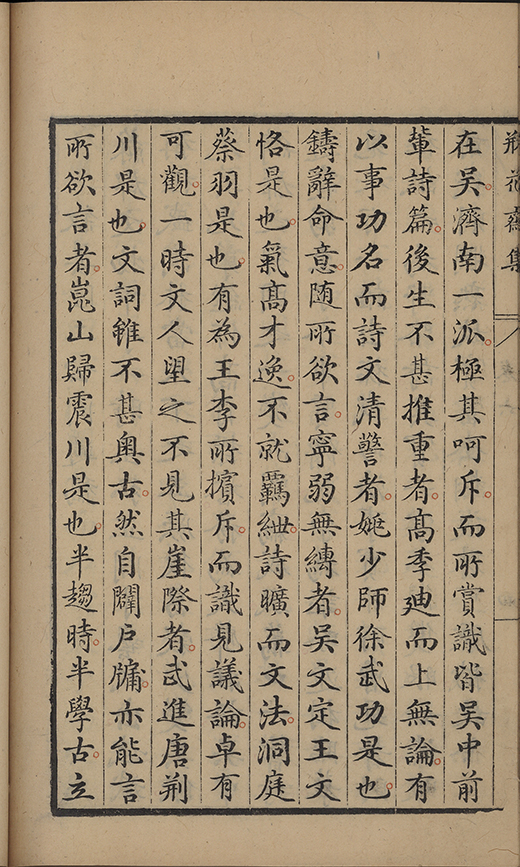 瓶花齋集
在吳濟南一派極其呵斥而所賞識皆吳中前
輩詩篇後生不甚推重者高季廸而上無論有
以事功名而詩文清警者姚少師徐武功是也
鑄辭命意随所欲言寧弱無縛者吳文定王文
恪是也氣高才逸不就羈絏詩曠而文法洞庭
蔡羽是也有為王李所擯斥而識見議論卓有
可觀一時文人望之不見其崖際者武進唐荆
川是也文詞雖不甚奥古然自闢戸牖亦能言
所欲言者崑山歸震川是也半趨時半學古立